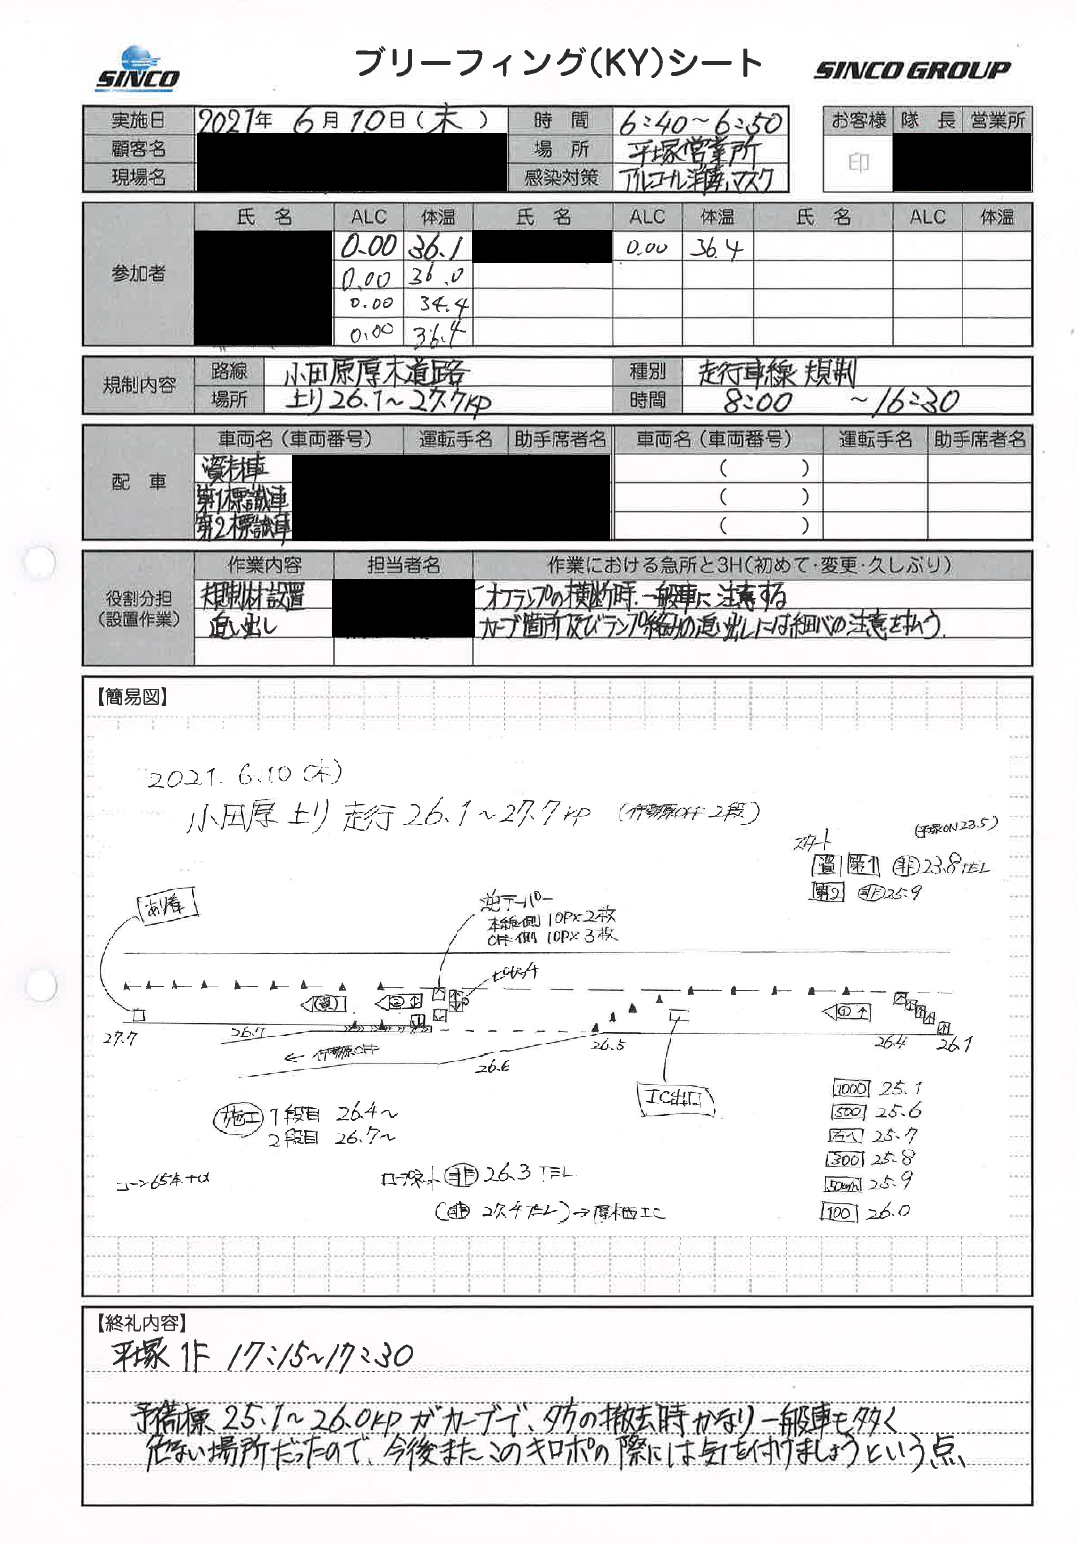 SINCO
ブリーフィング(KY)シート
SINCO GROUP
実施日 2021年 6月10日(木) 時間 6:40～6:50
顧客名 場所 平塚営業所
現場名 感染対策 アルコール消毒、マスク
お客様 隊長 営業所
印
参加者
氏名 ALC 体温 氏名 ALC 体温 氏名 ALC 体温
0.00 36.1 0.00 36.4
0.00 36.0
0.00 34.4
0.00 36.4
規制内容
路線 小田原厚木道路 種別 走行車線規制
場所 上り26.1～27.7KP 時間 8:00 ～16:30
配車
車両名(車両番号) 運転手名 助手席者名 車両名(車両番号) 運転手名 助手席者名
資材車 ( )
第1標識車 ( )
第2標識車 ( )
役割分担
(設置作業)
作業内容 担当者名 作業における急所と3H(初めて・変更・久しぶり)
規制材設置 オフランプの横断時、一般車に注意する
追い出し カーブ箇所及びランプ絡みの追い出しには細心の注意を払う。
【簡易図】
2021. 6.10 (木)
小田原 上り 走行 26.1～27.7KP (伊勢原OFF 2段)
スタート (平塚ON23.5)
資 第1 非 23.8TEL
第2 非 25.9
逆テーパー
本線側 10P×2枚
OFF側 10P×3枚
27.7
26.7
←伊勢原OFF
26.6
26.5
26.4
26.1
IC出口
施工 1段目 26.4～
2段目 26.7～
1000 25.1
500 25.6
25.7
300 25.8
50km 25.9
100 26.0
非 26.3 TEL
(非 27.4 TEL)→厚木西IC
【終礼内容】
平塚 1F 17:15～17:30
予備標 25.1～26.0KPがカーブで、夕方の撤去時かなり一般車も多く
危ない場所だったので、今後またこのキロポの際には気を付けましょうという点、